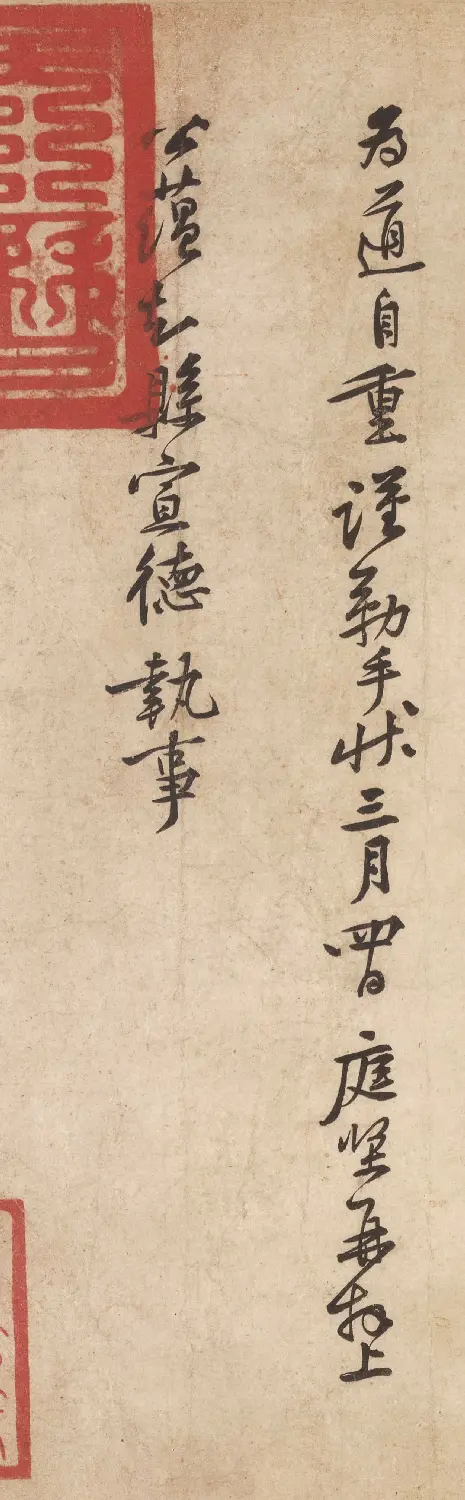 為道自重謹勒手狀三月四日庭堅再拜上
公蘊知縣宣德執事